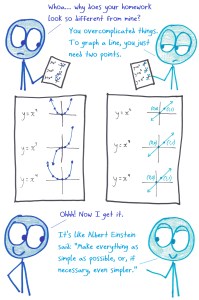 Whoa... why does your homework
look so different from mine?
You overcomplicated things.
To graph a line, you just
need two points.
Ohhh! Now I get it.
It's like Albert Einstein
said: "Make everything as
simple as possible, or, if
necessary, even simpler."